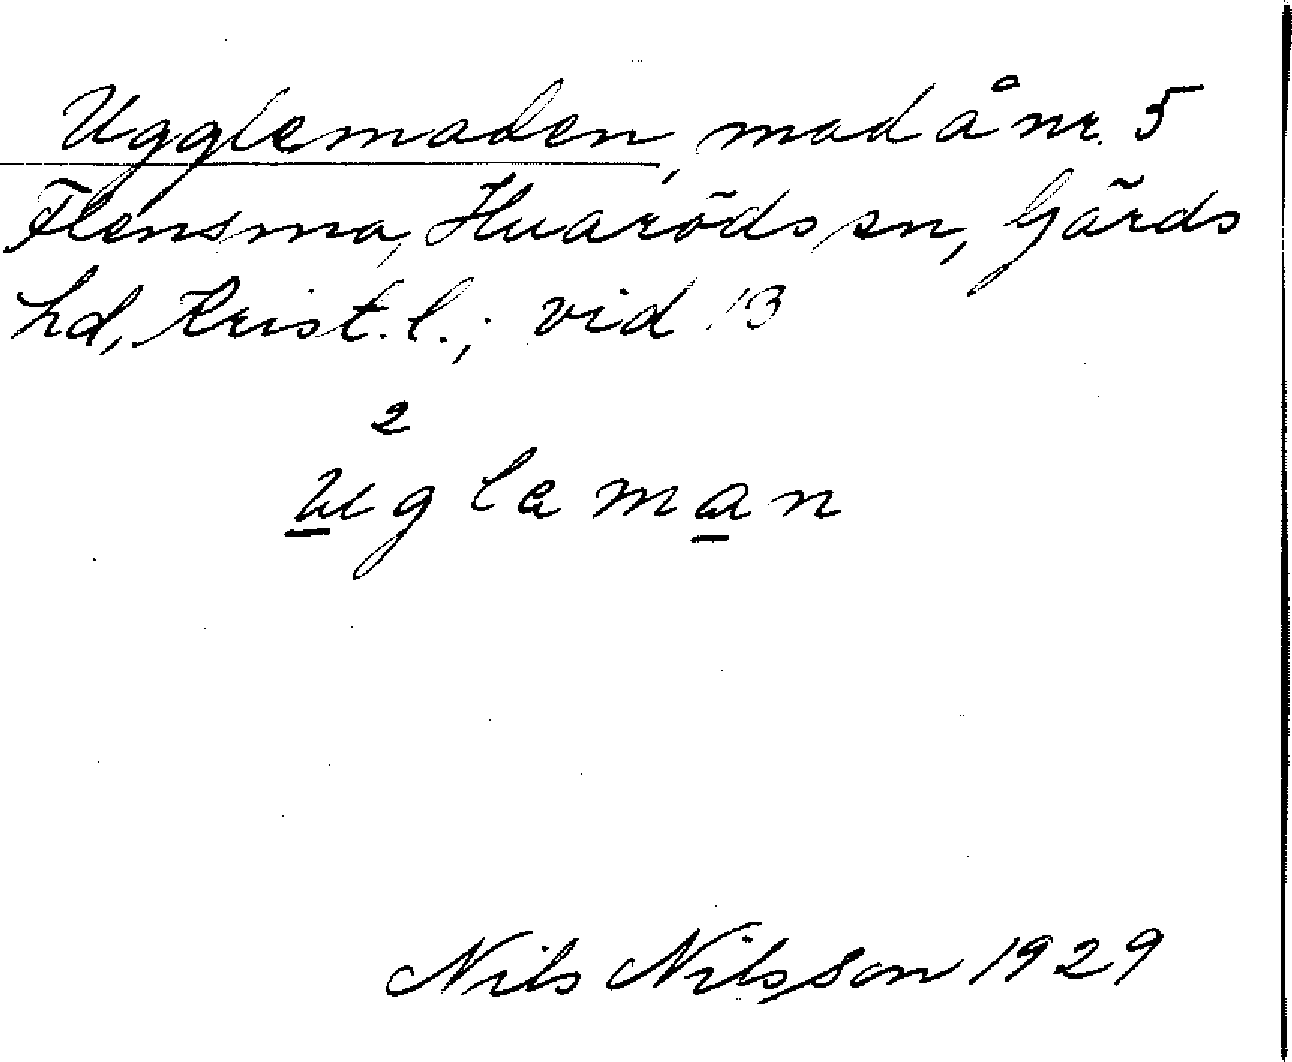 Ugglemaden, mad å nr. 5
Flensma, Huaröds sn, Gärds
hd, Krist. l.; vid 13
2
ugleman
Nils Nilsson 1929